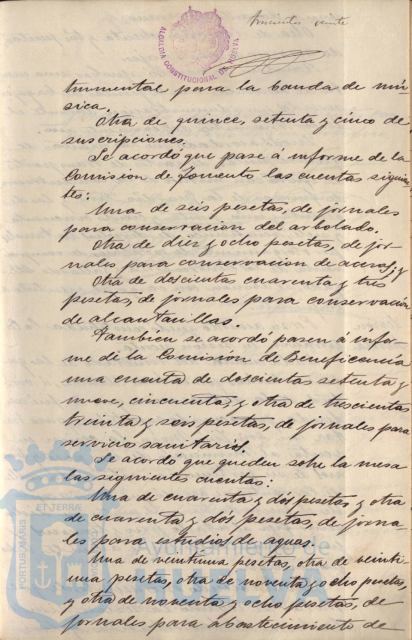 trescientos veinte
ALCALDIA CONSTITUCIONAL DE HUELVA
trumental para la banda de mú-
sica.
Otra de quince, setenta y cinco de
suscripciones.
Se acordó que pase á informe de la
Comision de Fomento las cuentas siguien-
tes:
Una de seis pesetas, de jornales
para conservacion del arbolado.
Otra de diez y ocho pesetas, de jor-
nales para conservacion de aceras; y
Otra de doscientas cuarenta y tres
pesetas, de jornales para conservacion
de alcantarillas.
Tambien se acordó pasen á infor-
me de la Comision de Beneficencia
una cuenta de doscientas setenta y
nueve, cincuenta y otra de trescientas
treinta y seis pesetas, de jornales para
servicios sanitarios.
Se acordó que queden sobre la mesa
las siguientes cuentas:
Una de cuarenta y dos pesetas y otra
de cuarenta y dos pesetas, de jorna-
les para estudios de aguas.
Una de veintiuna pesetas, otra de veinti-
una pesetas, otra de noventa y ocho pesetas,
y otra de noventa y ocho pesetas, de
jornales para abastecimiento de
PORTUS MARIS ET TERRA
Ayuntamiento de
HUELVA